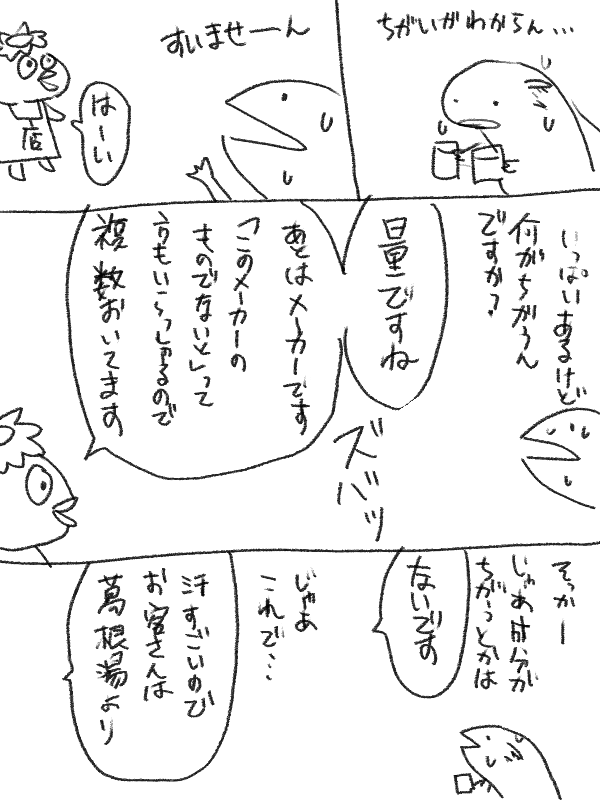 ちがいがわからん…
すいませーん
はーい
店
いっぱいあるけど
何がちがうん
ですか?
量ですね
あとはメーカーです
「このメーカーの
ものでないと」って
方もいらっしゃるので
複数おいてます
ズバッ
そっかー
じゃあ成分が
ちがうとかは
ないです
じゃあ
これで…
汗すごいので
お客さんは
葛根湯より